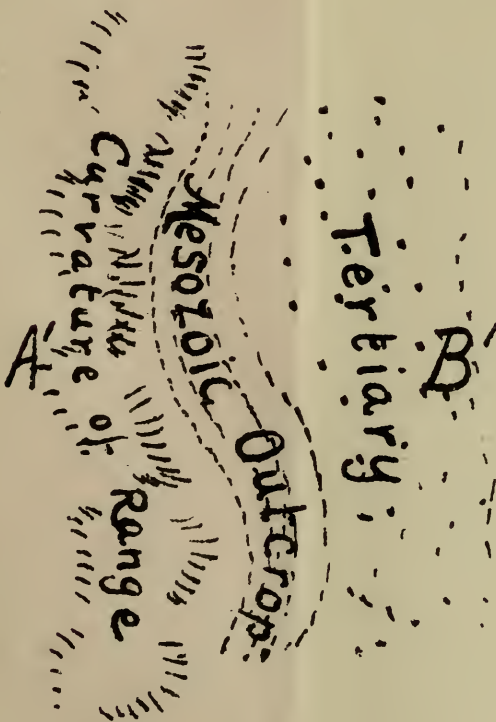 Tertiary
B'
Mesozoic Outcrop
Curvature of Range
A'